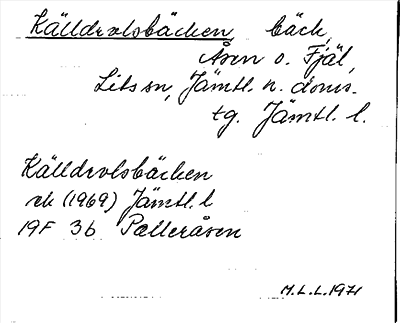 Källdrolsbäcken, bäck,
Åsen o. Fjäl,
Lits sn, Jämtl. n. doms.
tg. Jämtl. l.
Källdrolsbäcken
ek (1969) Jämtl. l
19F 3b Pelleråsen
M.L.L. 1971